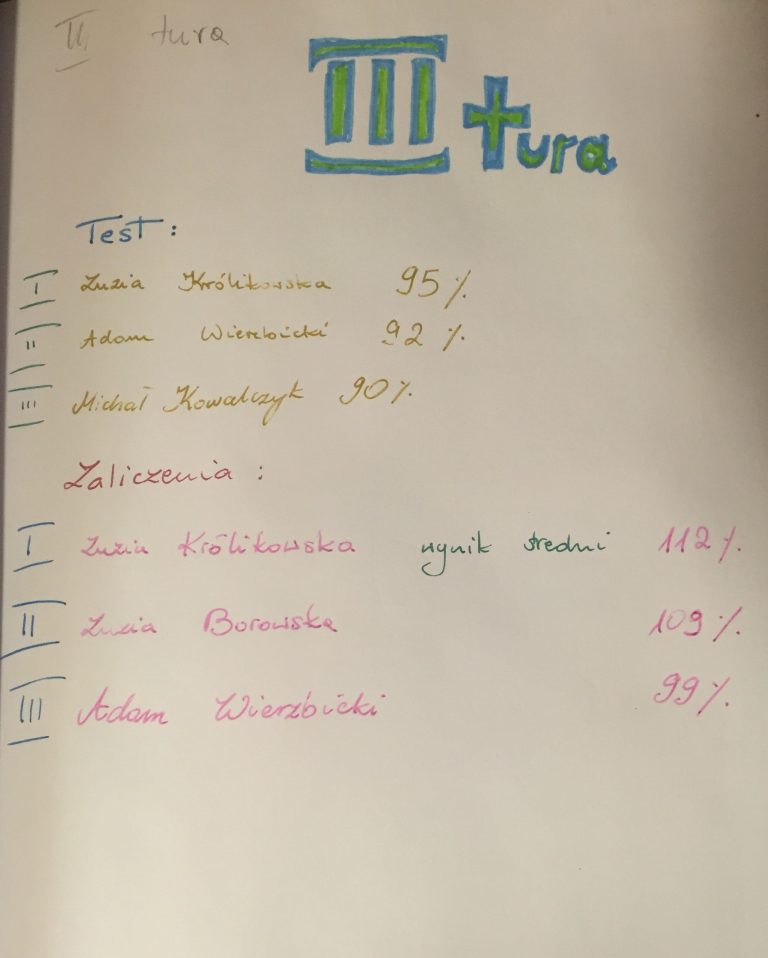 II tura
III tura
Test:
I Zuzia Królikowska 95%
II Adam Wierzbicki 92%
III Michał Kowalczyk 90%
Zaliczenia:
I Zuzia Królikowska wynik średni 112%
II Zuzia Borowska 109%
III Adam Wierzbicki 99%